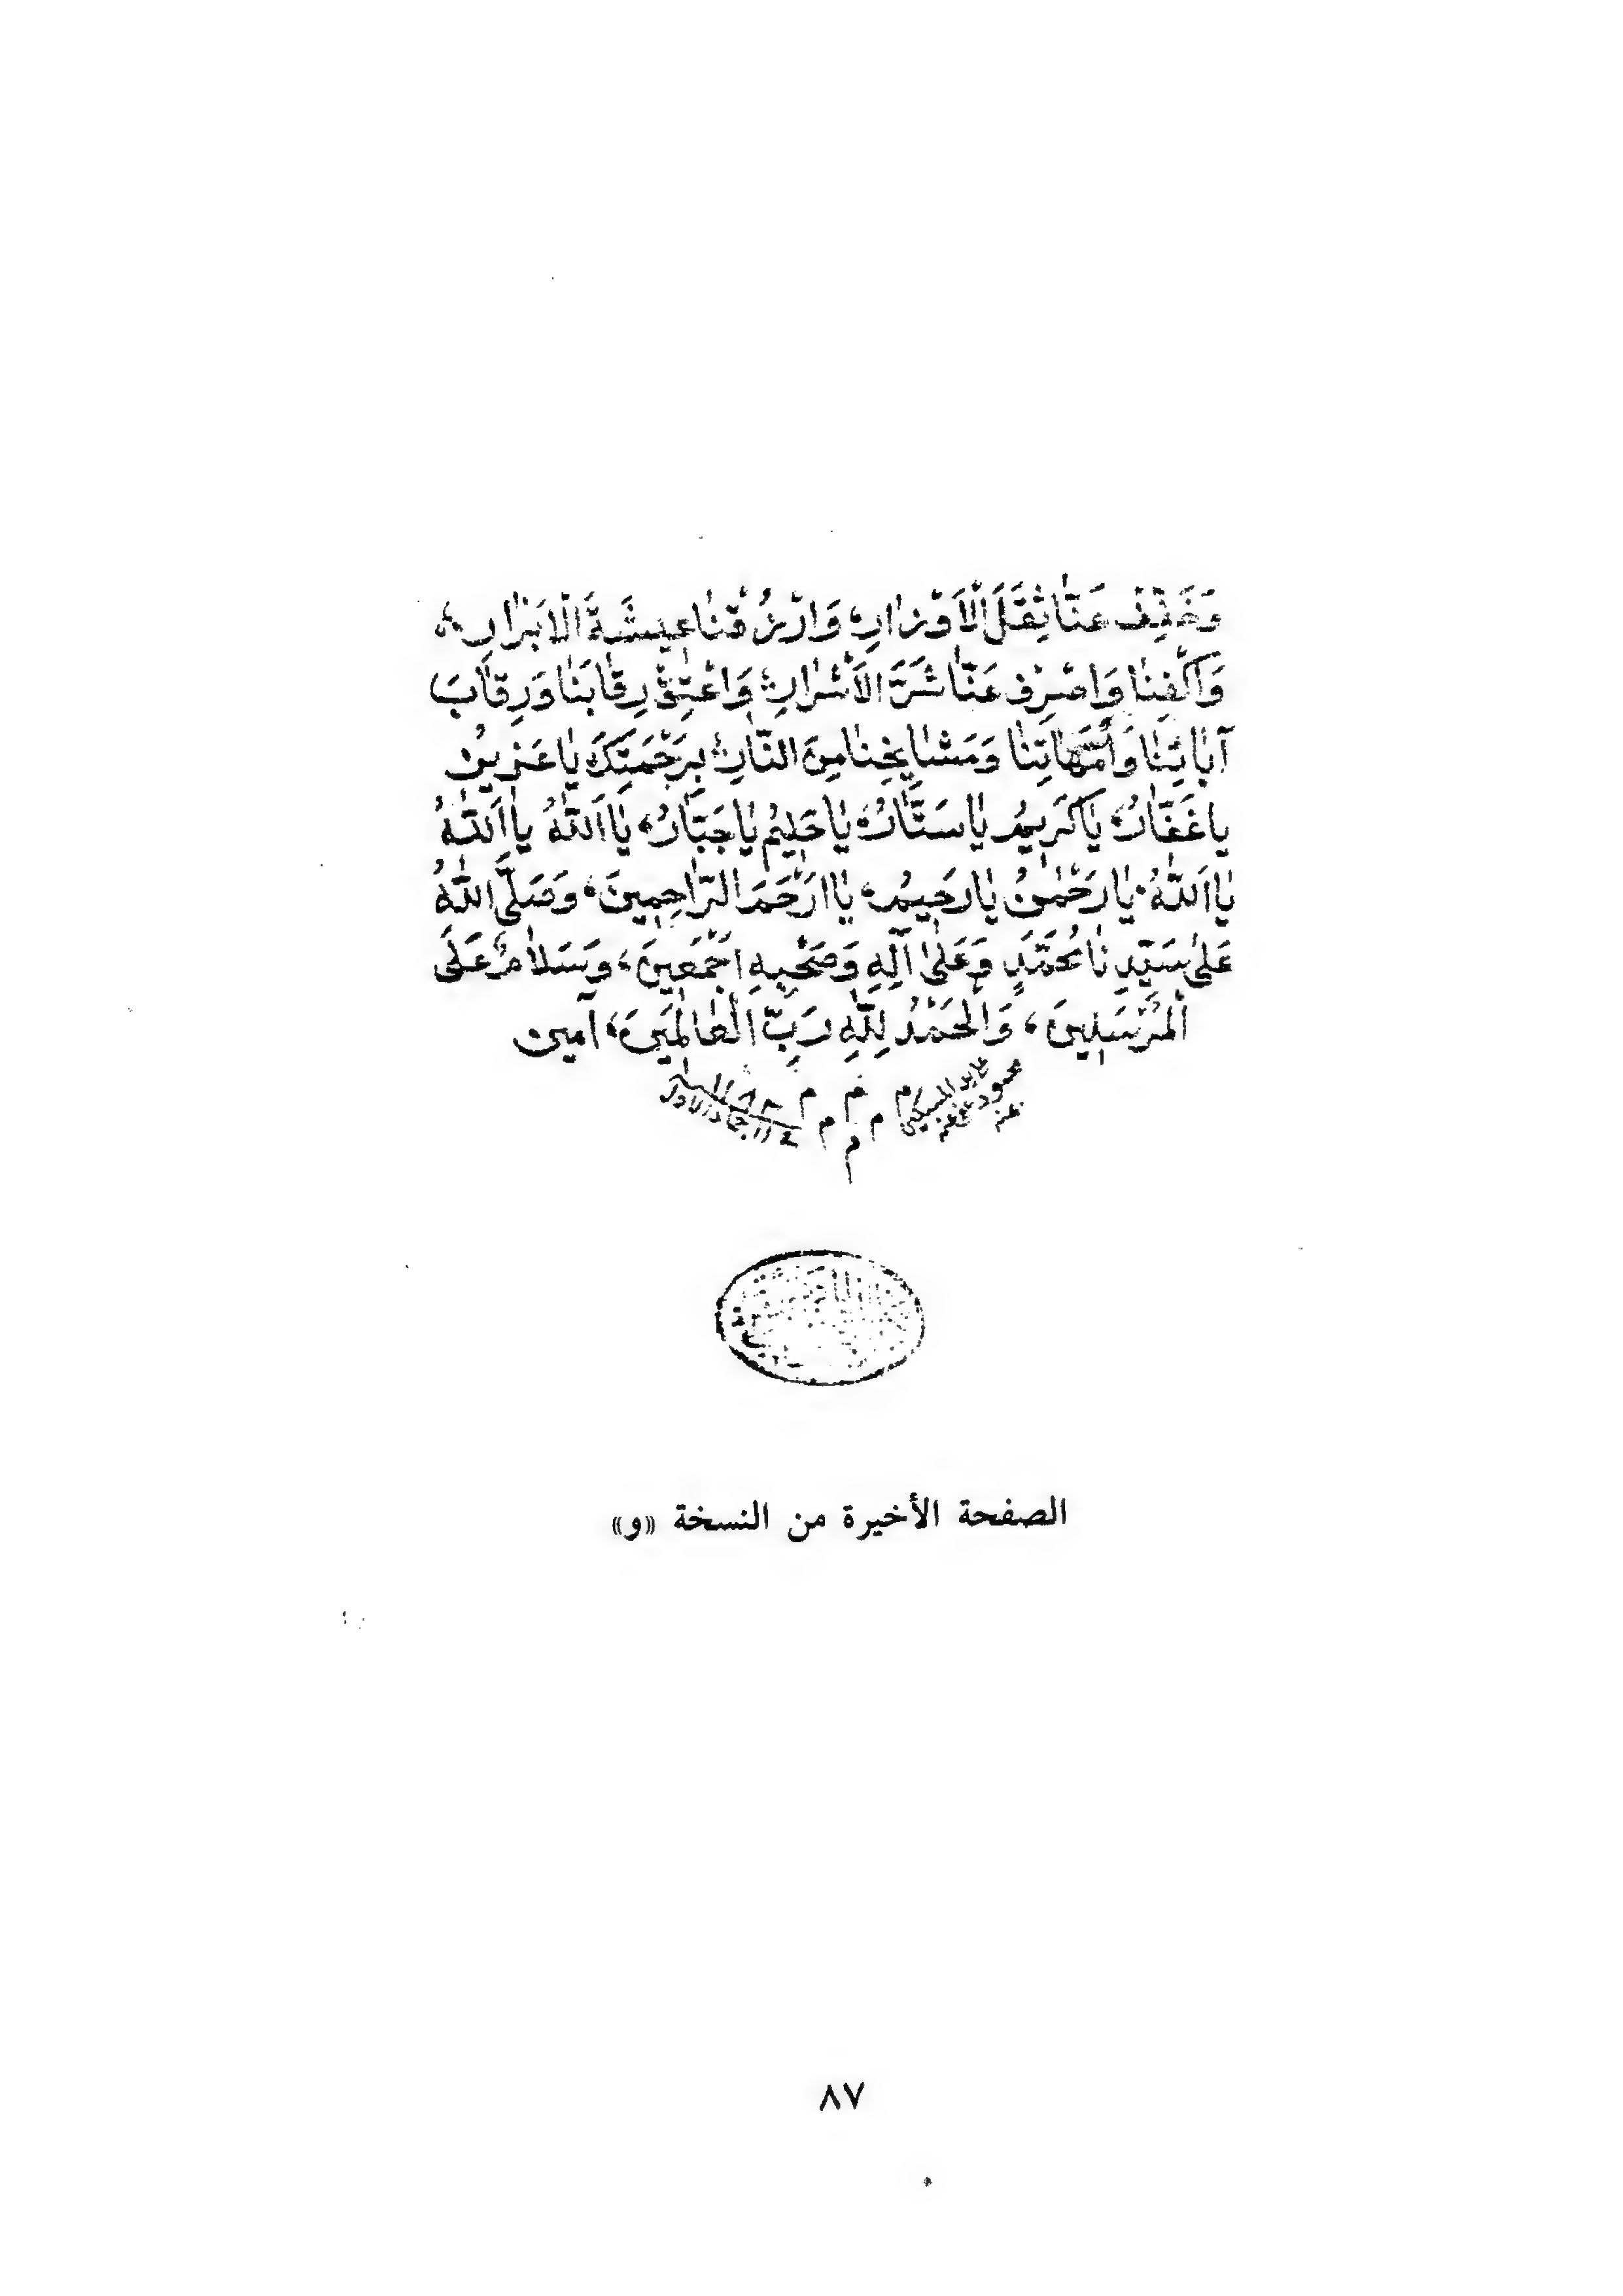 وَخَفِّفْ عَنَّا ثِقَلَ الْاَوْزَارِ، وَارْزُقْنَا عِيشَةَ الْاَبْرَارِ،
وَاكْفِنَا وَاصْرِفْ عَنَّا شَرَّ الْاَشْرَارِ، وَاعْتِقْ رِقَابَنَا وَرِقَابَ
آبَائِنَا وَاُمَّهَاتِنَا وَمَشَايِخِنَا مِنَ النَّارِ، بِرَحْمَتِكَ يَا عَزِيزُ
يَا غَفَّارُ، يَا كَرِيمُ يَا سَتَّارُ، يَا حَلِيمُ يَا جَبَّارُ، يَا اَللّٰهُ يَا اَللّٰهُ
يَا اَللّٰهُ، يَا رَحْمٰنُ يَا رَحِيمُ، يَا اَرْحَمَ الرَّاحِمِينَ، وَصَلَّى اللّٰهُ
عَلَى سَيِّدِنَا مُحَمَّدٍ وَعَلَى آلِهِ وَصَحْبِهِ اَجْمَعِينَ، وَسَلَامٌ عَلَى
الْمُرْسَلِينَ، وَالْحَمْدُ لِلّٰهِ رَبِّ الْعَالَمِينَ، آمِين
م م م
م م
م
الصفحة الأخيرة من النسخة «و»
٨٧